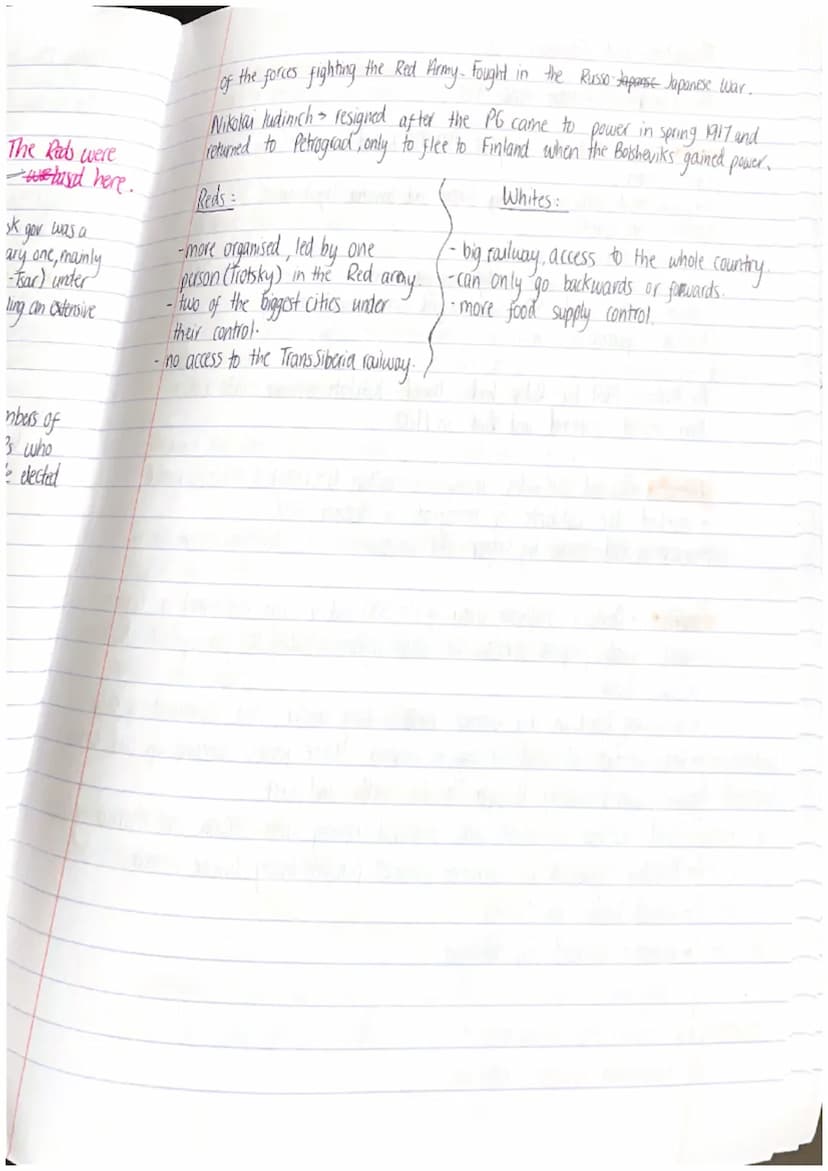 of the forces fighting the Red Army. Fought in the Russo-Japanse Japanese War.
Nikolai Iudinich → resigned after the PG came to power in spring 1917 and
returned to Petrograd, only to flee to Finland when the Bolsheviks gained power.
The Reds were
based here.
sk gov was a
ary one, mainly
-Tsar) under
ling an extensive
mbers of
's who
elected
Reds:
-more organised, led by one
person (Trotsky) in the Red army.
- two of the biggest cities under
their control.
- no access to the Trans Siberia railway.
Whites:
- big railway, access to the whole country.
-can only go backwards or forwards.
- more food supply control.